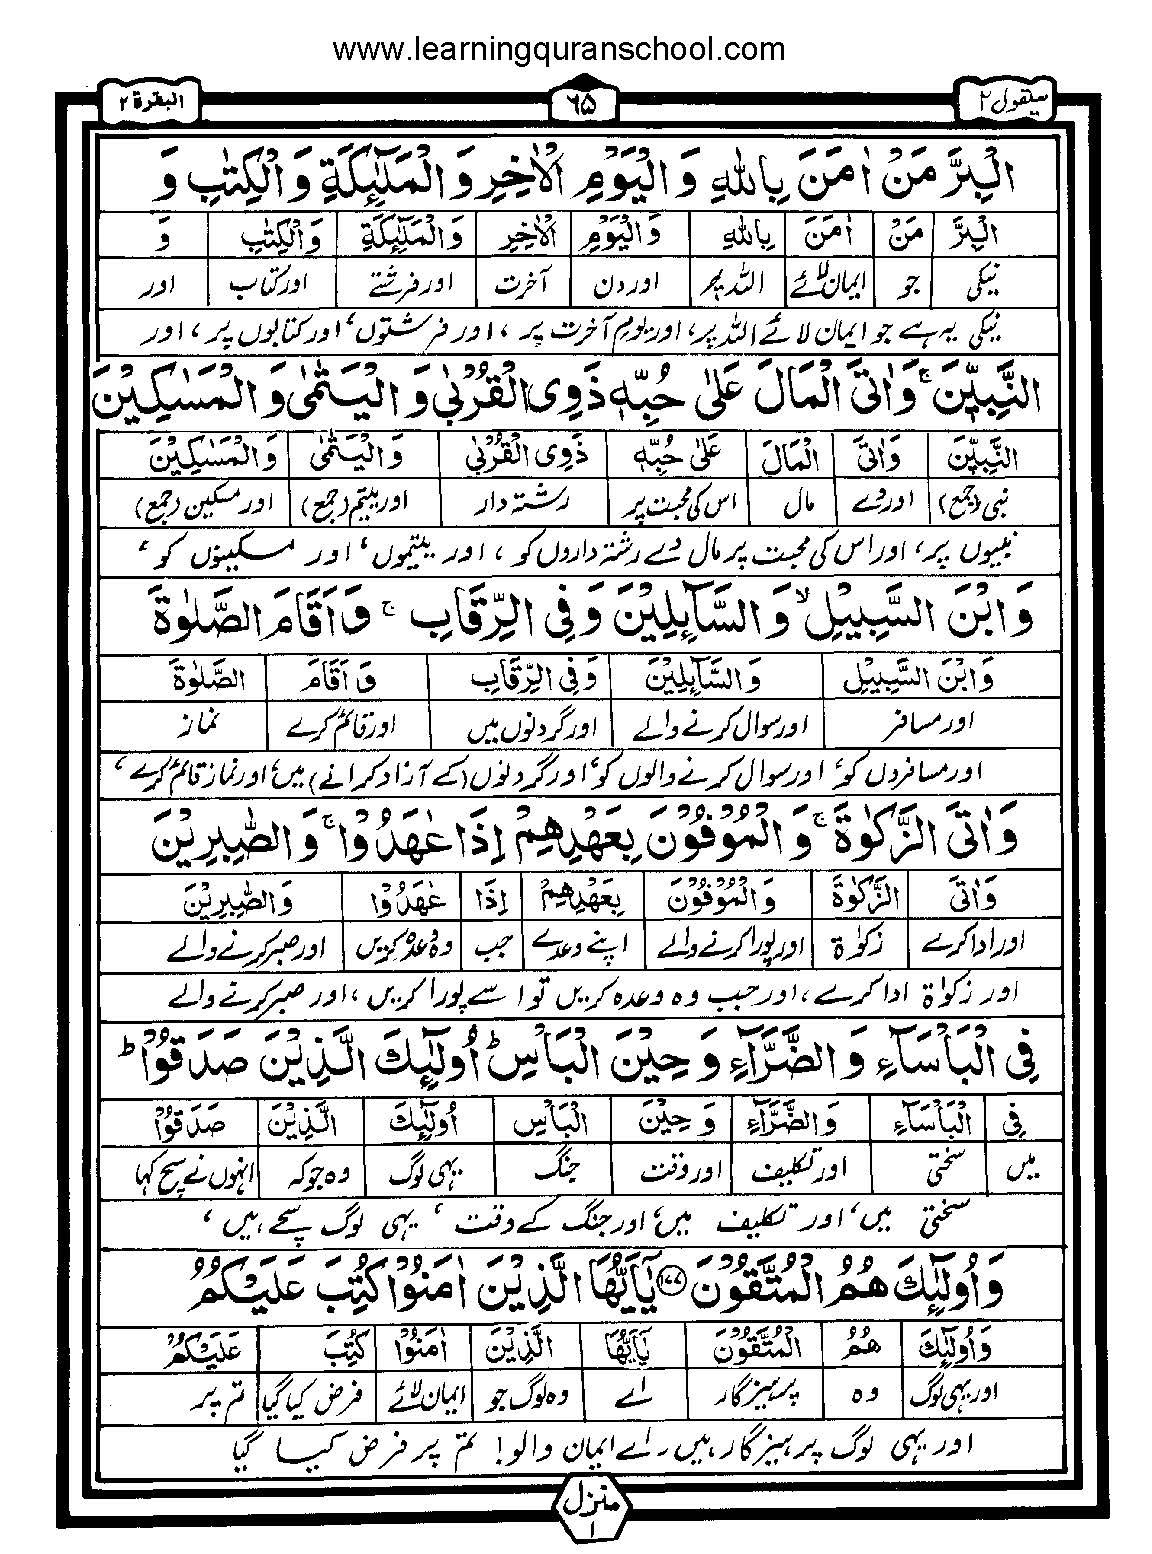 www.learningquranschool.com
سیقول ٢ ٦٥ البقرة ٢
الْبِرَّ مَنْ اٰمَنَ بِاللّٰهِ وَ الْیَوْمِ الْاٰخِرِ وَ الْمَلٰٓئِكَةِ وَ الْكِتٰبِ وَ
الْبِرَّ مَنْ اٰمَنَ بِاللّٰهِ وَ الْیَوْمِ الْاٰخِرِ وَ الْمَلٰٓئِكَةِ وَ الْكِتٰبِ وَ
نیکی جو ایمان لائے اللہ پر اور دن آخرت اور فرشتے اور کتاب اور
نیکی یہ ہے جو ایمان لائے اللہ پر، اور یوم آخرت پر، اور فرشتوں، اور کتابوں پر، اور
النَّبِیّٖنَ ۚ وَ اٰتَی الْمَالَ عَلٰی حُبِّهٖ ذَوِی الْقُرْبٰی وَ الْیَتٰمٰی وَ الْمَسٰكِیْنَ
النَّبِیّٖنَ وَ اٰتَی الْمَالَ عَلٰی حُبِّهٖ ذَوِی الْقُرْبٰی وَ الْیَتٰمٰی وَ الْمَسٰكِیْنَ
نبی (جمع) اور دے مال اس کی محبت پر رشتہ دار اور یتیم (جمع) اور مسکین (جمع)
نبیوں پر، اور اس کی محبت پر مال دے رشتہ داروں کو، اور یتیموں، اور مسکینوں کو،
وَ ابْنَ السَّبِیْلِ ۙ وَ السَّآئِلِیْنَ وَ فِی الرِّقَابِ ۚ وَ اَقَامَ الصَّلٰوةَ
وَ ابْنَ السَّبِیْلِ وَ السَّآئِلِیْنَ وَ فِی الرِّقَابِ وَ اَقَامَ الصَّلٰوةَ
اور مسافر اور سوال کرنے والے اور گردنوں میں اور قائم کرے نماز
اور مسافروں کو، اور سوال کرنے والوں کو، اور گردنوں (کے آزاد کرانے) میں، اور نماز قائم کرے،
وَ اٰتَی الزَّكٰوةَ ۚ وَ الْمُوْفُوْنَ بِعَهْدِهِمْ اِذَا عٰهَدُوْا ۚ وَ الصّٰبِرِیْنَ
وَ اٰتَی الزَّكٰوةَ وَ الْمُوْفُوْنَ بِعَهْدِهِمْ اِذَا عٰهَدُوْا وَ الصّٰبِرِیْنَ
اور ادا کرے زکوٰۃ اور پورا کرنے والے اپنے وعدے جب وہ وعدہ کریں اور صبر کرنے والے
اور زکوٰۃ ادا کرے، اور جب وہ وعدہ کریں تو اسے پورا کریں، اور صبر کرنے والے
فِی الْبَاْسَآءِ وَ الضَّرَّآءِ وَ حِیْنَ الْبَاْسِ ؕ اُولٰٓئِكَ الَّذِیْنَ صَدَقُوْا ؕ
فِی الْبَاْسَآءِ وَ الضَّرَّآءِ وَ حِیْنَ الْبَاْسِ اُولٰٓئِكَ الَّذِیْنَ صَدَقُوْا
میں سختی اور تکلیف اور وقت جنگ یہی لوگ وہ جو کہ انہوں نے سچ کہا
سختی میں، اور تکلیف میں، اور جنگ کے وقت، یہی لوگ سچے ہیں،
وَ اُولٰٓئِكَ هُمُ الْمُتَّقُوْنَ ١٧٧ یٰۤاَیُّهَا الَّذِیْنَ اٰمَنُوْا كُتِبَ عَلَیْكُمُ
وَ اُولٰٓئِكَ هُمُ الْمُتَّقُوْنَ یٰۤاَیُّهَا الَّذِیْنَ اٰمَنُوْا كُتِبَ عَلَیْكُمُ
اور یہی لوگ وہ پرہیزگار اے وہ لوگ جو ایمان لائے فرض کیا گیا تم پر
اور یہی لوگ پرہیزگار ہیں۔ اے ایمان والو! تم پر فرض کیا گیا
منزل ١